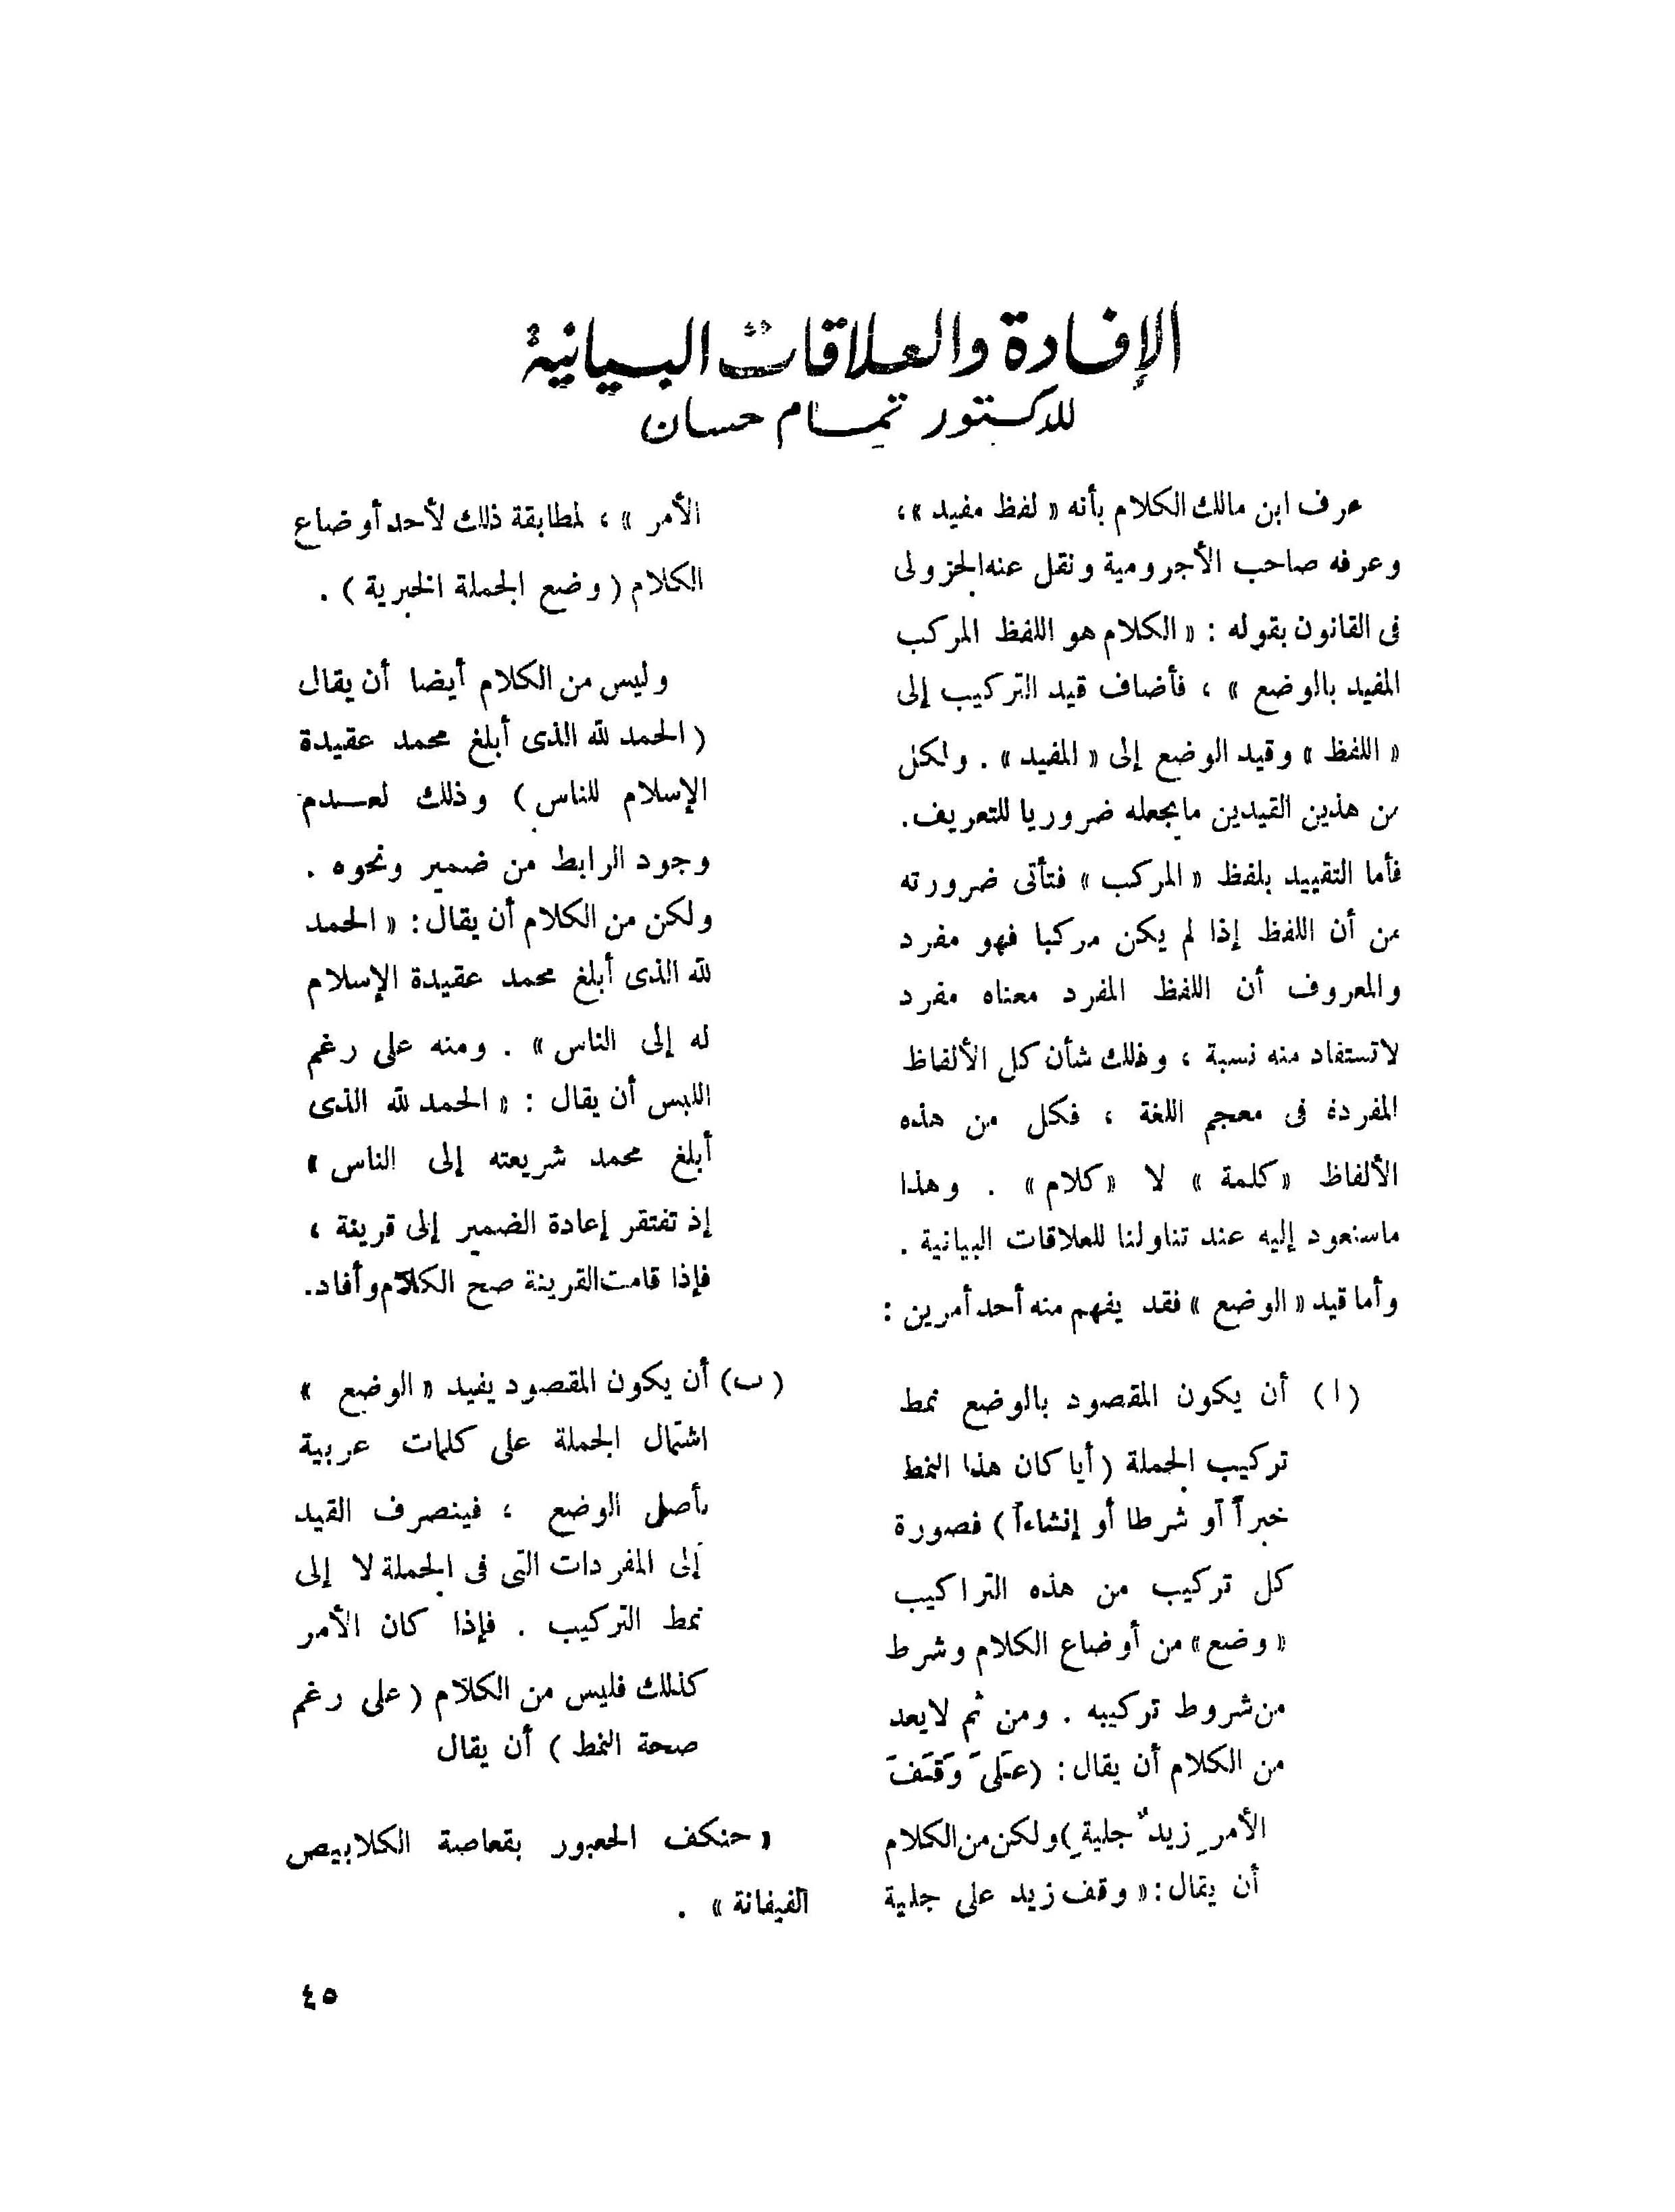 الإفادة والعلاقات البيانية
للدكتور تمام حسان
عرف ابن مالك الكلام بأنه « لفظ مفيد »،
وعرفه صاحب الأجرومية ونقل عنه الجزولى
فى القانون بقوله : « الكلام هو اللفظ المركب
المفيد بالوضع » ، فأضاف قيد التركيب إلى
« اللفظ » وقيد الوضع إلى « المفيد » . ولكل
من هذين القيدين مايجعله ضروريا للتعريف.
فأما التقييد بلفظ « المركب » فتأتى ضرورته
من أن اللفظ إذا لم يكن مركبا فهو مفرد
والمعروف أن اللفظ المفرد معناه مفرد
لاتستفاد منه نسبة ، وذلك شأن كل الألفاظ
المفردة فى معجم اللغة ، فكل من هذه
الألفاظ «كلمة » لا «كلام» . وهذا
ماسنعود إليه عند تناولنا للعلاقات البيانية .
وأما قيد « الوضع » فقد يفهم منه أحد أمرين :
( ا ) أن يكون المقصود بالوضع نمط
تركيب الجملة ( أيا كان هذا النمط
خبراً أو شرطا أو إنشاءاً ) فصورة
كل تركيب من هذه التراكيب
« وضع» من أوضاع الكلام وشرط
من شروط تركيبه . ومن ثم لايعد
من الكلام أن يقال : (عَلىَ وَقَفَ
الأمرِ زيدٌ جليةِ )ولكن من الكلام
أن يقال : « وقف زيد على جلية
الأمر » ، لمطابقة ذلك لأحد أوضاع
الكلام ( وضع الجملة الخبرية ) .
وليس من الكلام أيضا أن يقال
( الحمد لله الذى أبلغ محمد عقيدة
الإسلام للناس ) وذلك لعـــدم
وجود الرابط من ضمير ونحوه .
ولكن من الكلام أن يقال : « الحمد
لله الذى أبلغ محمد عقيدة الإسلام
له إلى الناس » . ومنه على رغم
اللبس أن يقال : « الحمد لله الذى
أبلغ محمد شريعته إلى الناس »
إذ تفتقر إعادة الضمير إلى قرينة ،
فإذا قامت القرينة صح الكلام وأفاد.
( ب ) أن يكون المقصود يفيد « الوضع »
اشتمال الجملة على كلمات عربية
بأصل الوضع ، فينصرف القيد
إلى المفردات التى فى الجملة لا إلى
نمط التركيب . فإذا كان الأمر
كذلك فليس من الكلام ( على رغم
صحة النمط ) أن يقال
« حنكف الحعبور بقعاصة الكلابيص
الفيفانة » .
٤٥